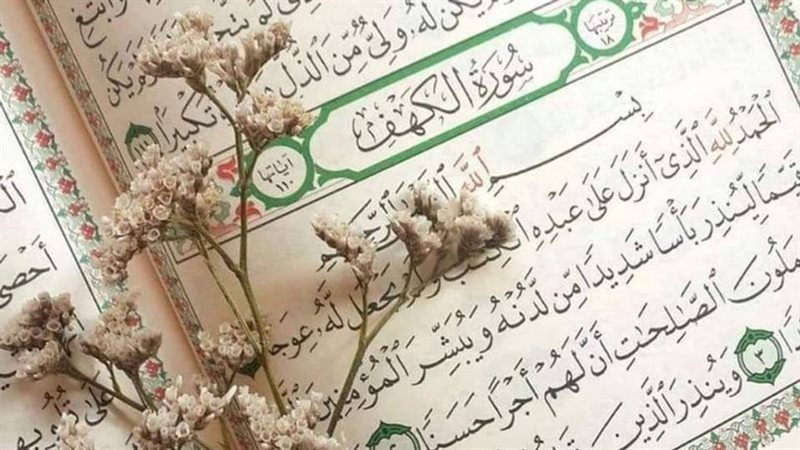 وَٱبْتَغِ
يَكُن لَّهُۥ وَلِىٌّ مِّنَ ٱلذُّلِّ
تَكْبِيرًا ١١١
ترتيبها ١٨
سُورَةُ الكَهْفِ
آياتها ١١٠
بِسْمِ ٱللَّهِ ٱلرَّحِيمِ
ٱلْحَمْدُ لِلَّهِ ٱلَّذِىٓ أَنزَلَ عَلَىٰ عَبْدِهِ ٱلْكِتَٰبَ يَجْعَل لَّهُۥ عِوَجَا
قَيِّمًا لِّيُنذِرَ بَأْسًا شَدِيدًا مِّن لَّدُنْهُ وَيُبَشِّرَ ٱلْمُؤْمِنِينَ
مَلُونَ ٱلصَّٰلِحَٰتِ أَنَّ لَهُمْ أَجْرًا حَسَنًا
٣ وَيُنذِرَ ٱلَّذِينَ
أَحْصَىٰ
عَلَىٰ